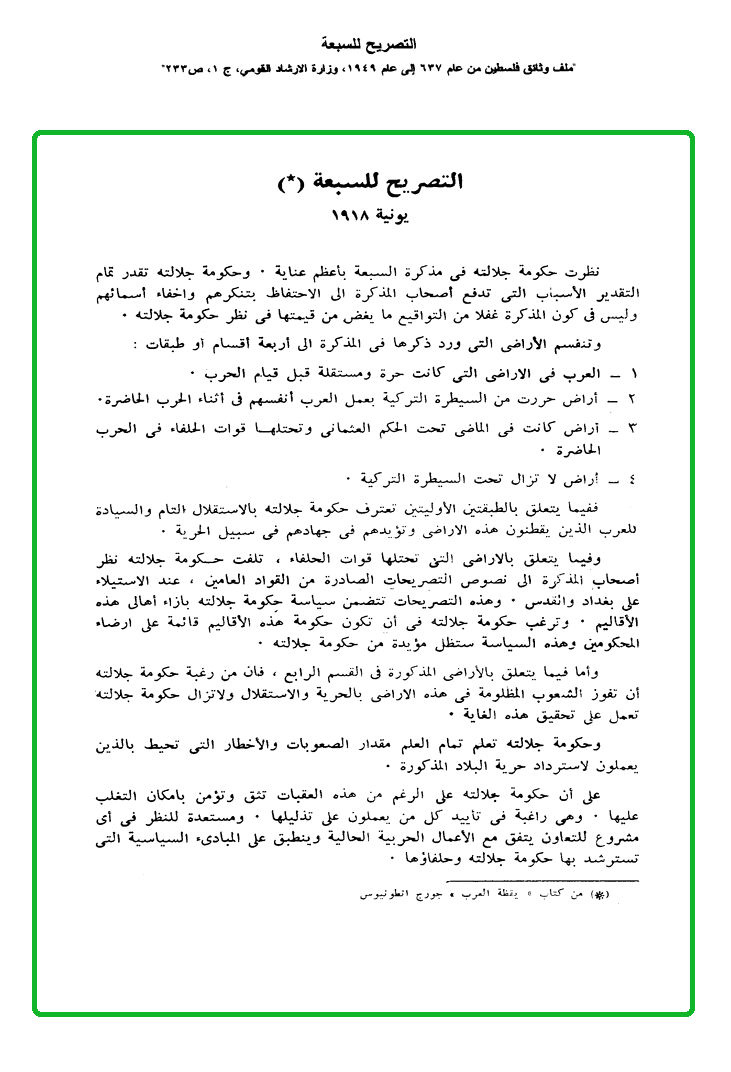 التصريح للسبعة
"ملف وثائق فلسطين من عام ٦٣٧ إلى عام ١٩٤٩، وزارة الارشاد القومي، ج ١، ص٢٣٣"
التصريح للسبعة (*)
يونية ١٩١٨
نظرت حكومة جلالته فى مذكرة السبعة بأعظم عناية ٠ وحكومة جلالته تقدر تمام
التقدير الأسباب التى تدفع أصحاب المذكرة الى الاحتفاظ بتنكرهم واخفاء أسمائهم
وليس فى كون المذكرة غفلا من التواقيع ما يغض من قيمتها فى نظر حكومة جلالته ٠
وتنقسم الأراضى التى ورد ذكرها فى المذكرة الى أربعة أقسام أو طبقات :
١ ــ العرب فى الاراضى التى كانت حرة ومستقلة قبل قيام الحرب ٠
٢ ــ أراض حررت من السيطرة التركية بعمل العرب أنفسهم فى أثناء الحرب الحاضرة٠
٣ ــ أراض كانت فى الماضى تحت الحكم العثمانى وتحتلهـا قوات الحلفاء فى الحرب
الحاضرة ٠
٤ ــ أراض لا تزال تحت السيطرة التركية ٠
ففيما يتعلق بالطبقتين الأوليتين تعترف حكومة جلالته بالاستقلال التام والسيادة
للعرب الذين يقطنون هذه الاراضى وتؤيدهم فى جهادهم فى سبيل الحرية ٠
وفيما يتعلق بالاراضى التى تحتلها قوات الحلفاء ، تلفت حـكومة جلالته نظر
أصحاب المذكرة الى نصوص التصريحات الصادرة من القواد العامين ، عند الاستيلاء
على بغداد والقدس ٠ وهذه التصريحات تتضمن سياسة حكومة جلالته بازاء أهالى هذه
الأقاليم ٠ وترغب حكومة جلالته فى أن تكون حكومة هذه الأقاليم قائمة على ارضاء
المحكومين وهذه السياسة ستظل مؤيدة من حكومة جلالته ٠
وأما فيما يتعلق بالأراضى المذكورة فى القسم الرابع ، فان من رغبة حكومة جلالته
أن تفوز الشعوب المظلومة فى هذه الاراضى بالحرية والاستقلال ولاتزال حكومة جلالته
تعمل على تحقيق هذه الغاية ٠
وحكومة جلالته تعلم تمام العلم مقدار الصعوبات والأخطار التى تحيط بالذين
يعملون لاسترداد حرية البلاد المذكورة ٠
على أن حكومة جلالته على الرغم من هذه العقبات تثق وتؤمن بامكان التغلب
عليها ٠ وهى راغبة فى تأييد كل من يعملون على تذليلها ٠ ومستعدة للنظر فى أى
مشروع للتعاون يتفق مع الأعمال الحربية الحالية وينطبق على المبادىء السياسية التى
تسترشد بها حكومة جلالته وحلفاؤها ٠
(*) من كتاب « يقظة العرب » جورج انطونيوس